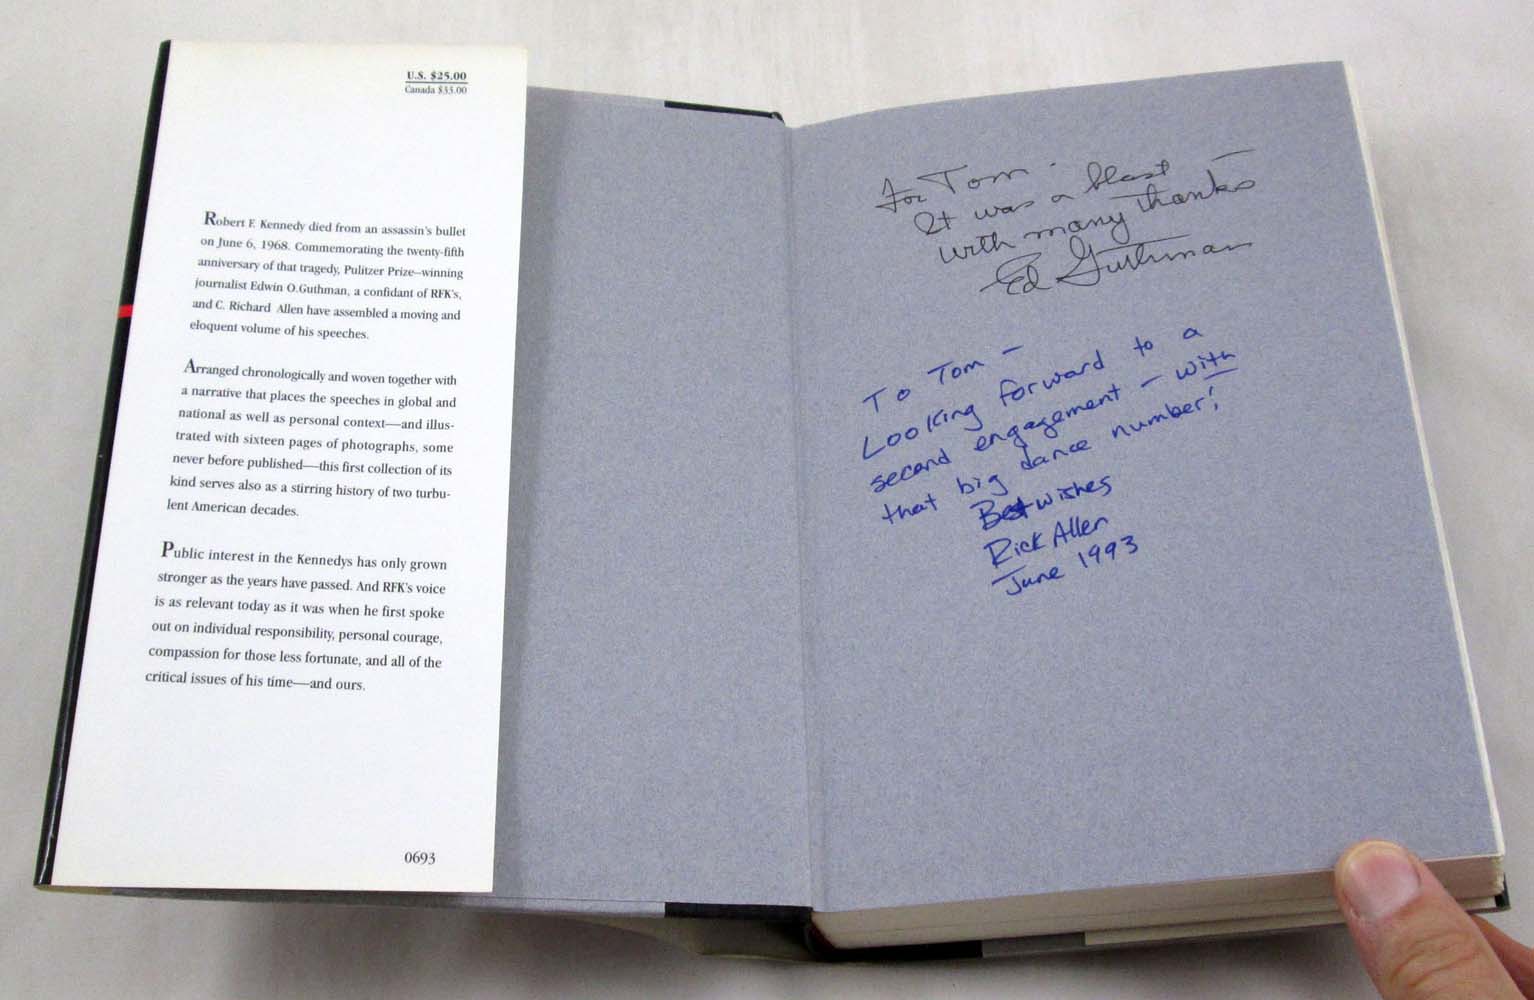 U.S. $25.00
Canada $33.00
Robert F. Kennedy died from an assassin's bullet
on June 6, 1968. Commemorating the twenty-fifth
anniversary of that tragedy, Pulitzer Prize–winning
journalist Edwin O.Guthman, a confidant of RFK's,
and C. Richard Allen have assembled a moving and
eloquent volume of his speeches.
Arranged chronologically and woven together with
a narrative that places the speeches in global and
national as well as personal context—and illus-
trated with sixteen pages of photographs, some
never before published—this first collection of its
kind serves also as a stirring history of two turbu-
lent American decades.
Public interest in the Kennedys has only grown
stronger as the years have passed. And RFK's voice
is as relevant today as it was when he first spoke
out on individual responsibility, personal courage,
compassion for those less fortunate, and all of the
critical issues of his time—and ours.
0693
For Tom -
It was a blast -
with many thanks
Ed Guthman
To Tom -
Looking forward to a
second engagement - with
that big dance number!
Best wishes
Rick Allen
June 1993